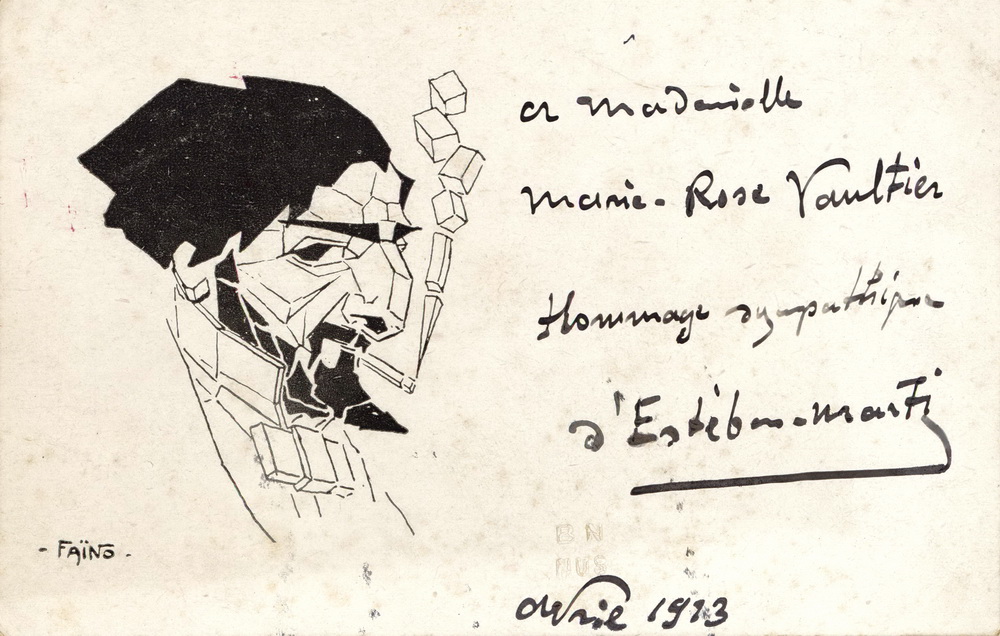 a mademoiselle
Marie-Rose Vaultier
Hommage sympathique
d'Estéban-Marti
- FAÏNO -
BN
MUS
Avril 1913